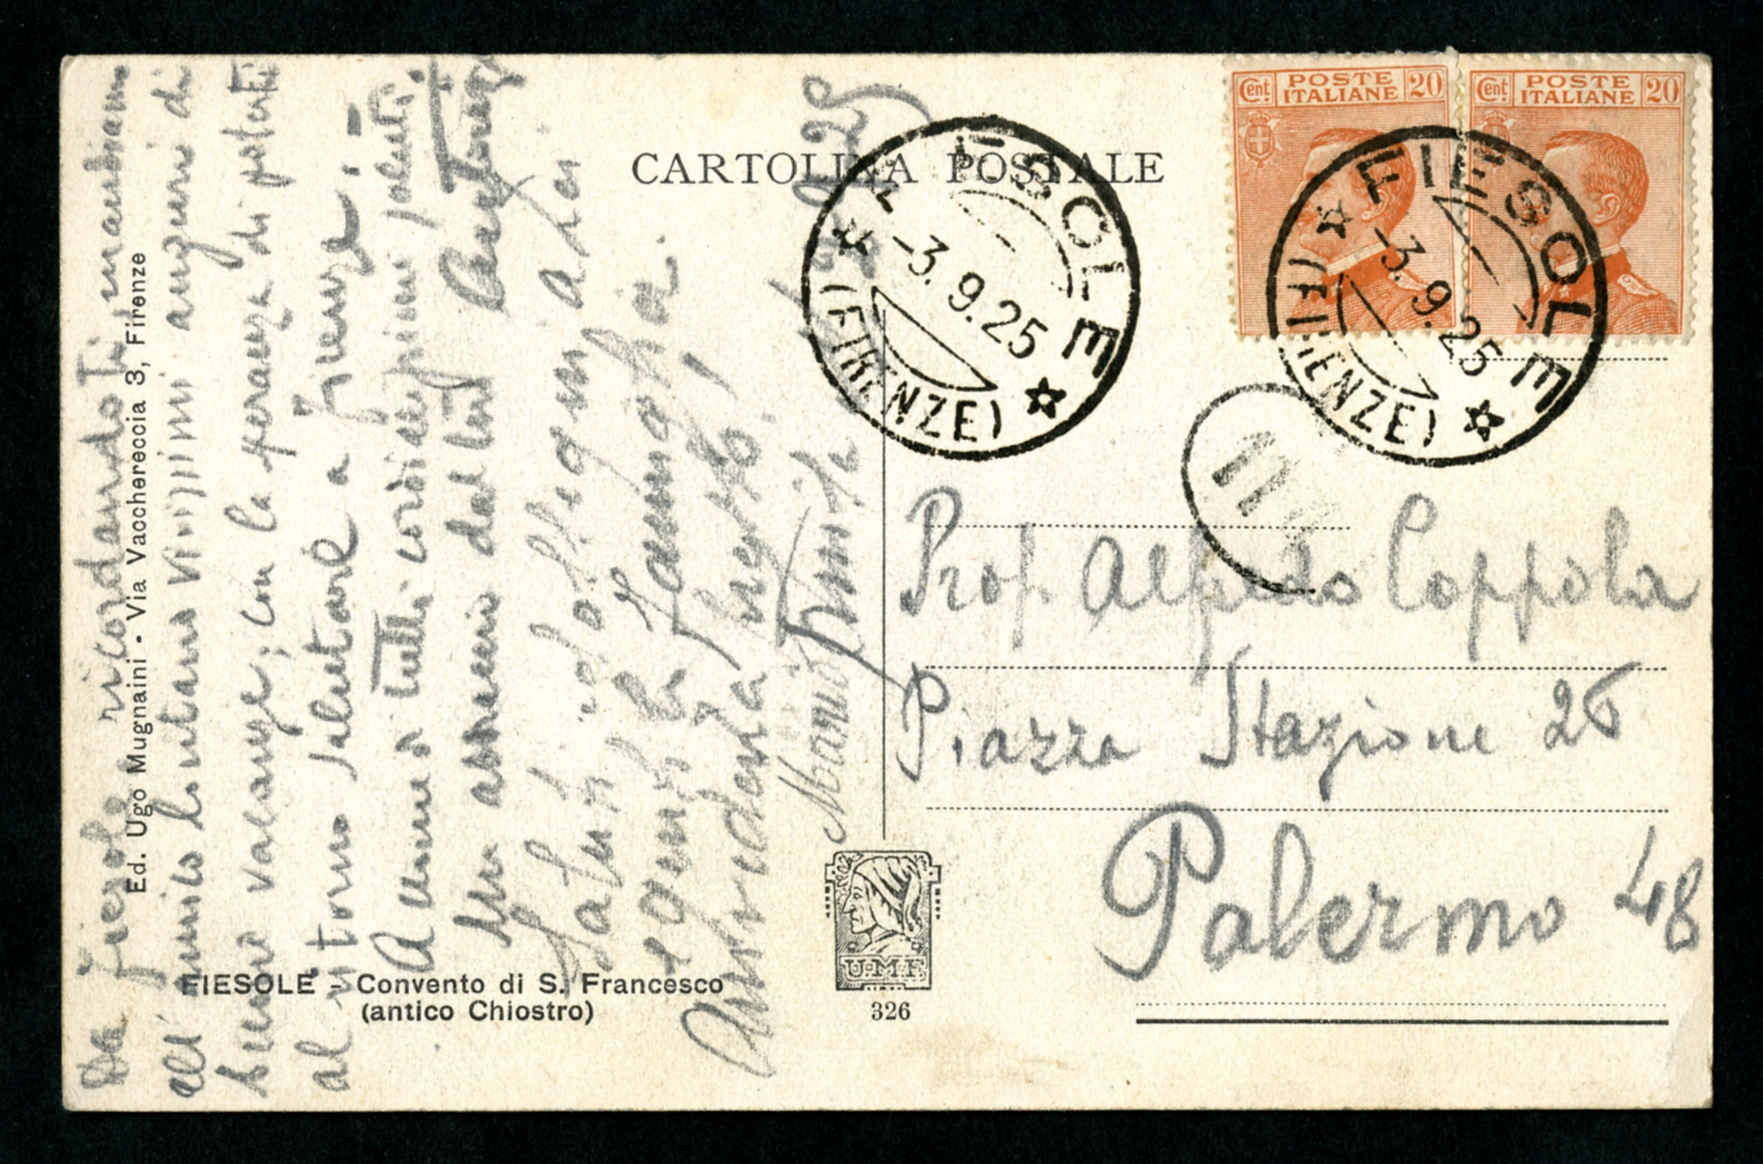 CARTOLINA POSTALE
Cent POSTE ITALIANE 20
Cent POSTE ITALIANE 20
FIESOLE
-3.9.25
(FIRENZE)
FIESOLE
-3.9.25
(FIRENZE)
Prof. Alfredo Coppola
Piazza Stazione 26
Palermo 48
Da Fiesole ricordando Ti mandiamo
all' amico lontano vivissimi auguri di
buone vacanze, con la speranza di poterti
al ritorno salutare a Firenze.
A nome di tutti cordialissimi saluti.
Un abbraccio dal tuo
Saluti ed ossequi a Lei
e quelli la famiglia.
Arrivederla presto.
Ed. Ugo Mugnaini - Via Vacchereccia 3, Firenze
FIESOLE - Convento di S. Francesco
(antico Chiostro)
U·M·F·
326